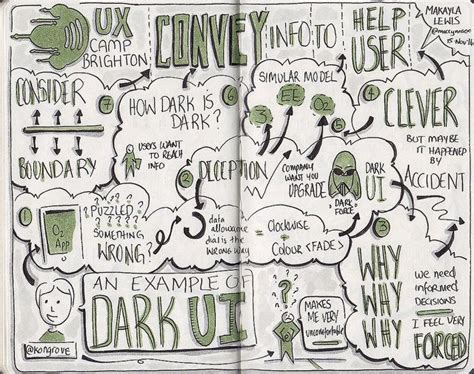 UX
CAMP
BRIGHTON
CONVEY
INFO TO
HELP
USER
MAKAYLA
LEWIS
15 Nov '14
CONSIDER
BOUNDARY
7
HOW DARK IS
DARK?
USERS WANT
TO REACH
INFO
6
SIMULAR MODEL
3
EE
O2
4
CLEVER
BUT MAYBE
IT HAPPENED
BY
ACCIDENT
2
DECEPTION
COMPANY
WANT YOU
UPGRADE
DARK
UI
DARK
FORCE
1
O2
APP
PUZZLED?
SOMETHING
WRONG?
data
allowance
dial is the
wrong way
=
Clockwise
+
Colour <FADE>
3
WHY
WHY
WHY
we need
informed
DECISIONS
I FEEL VERY
FORCED
@kongrove
AN EXAMPLE OF
DARK UI
?
MAKES
ME VERY
uncomfortable